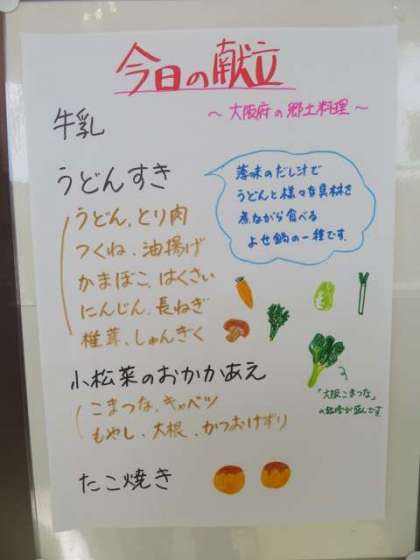 今日の献立
～大阪府の郷土料理～
牛乳
うどんすき
うどん、とり肉
つくね、油揚げ
かまぼこ、はくさい
にんじん、長ねぎ
椎茸、しゅんぎく
薄味のだし汁で
うどんと様々な具材を
煮ながら食べる
よせ鍋の一種です。
小松菜のおかかあえ
こまつな、キャベツ
もやし、大根、かつおけずり
「大阪こまつな」
たこ焼き